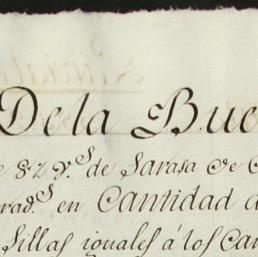 De la Bue
82 y.s de Sarasa de
rad.s en Cantidad d
Sillas iguales á los Can